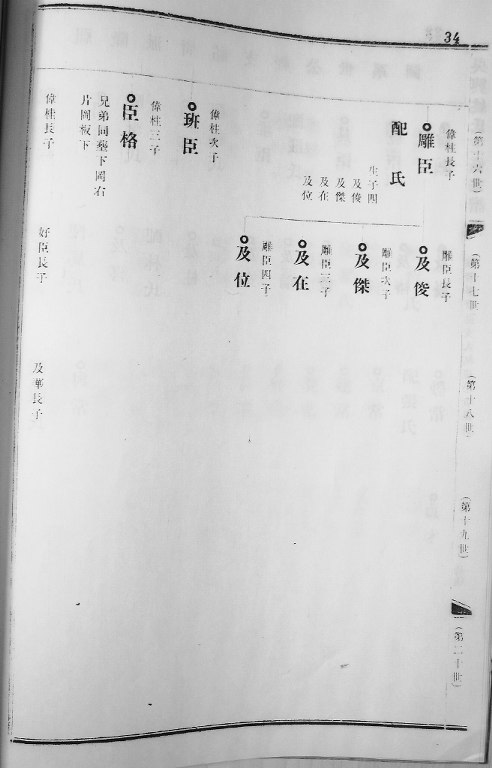 34
(第十六世)
(第十七世
(第十八世)
(第十九世)
(第二十世)
偉桂長子
雕臣
配 氏
生子四
及俊
及傑
及在
及位
雕臣長子
及俊
雕臣次子
及傑
雕臣三子
及在
雕臣四子
及位
偉桂次子
班臣
偉桂三子
臣格
兄弟同塟下岡右
片岡坂下
偉桂長子
好臣長子
長子